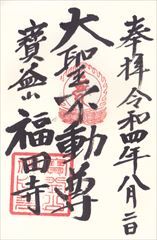 奉拝 令和四年八月二日
大聖不動尊
寶盆山 福田寺